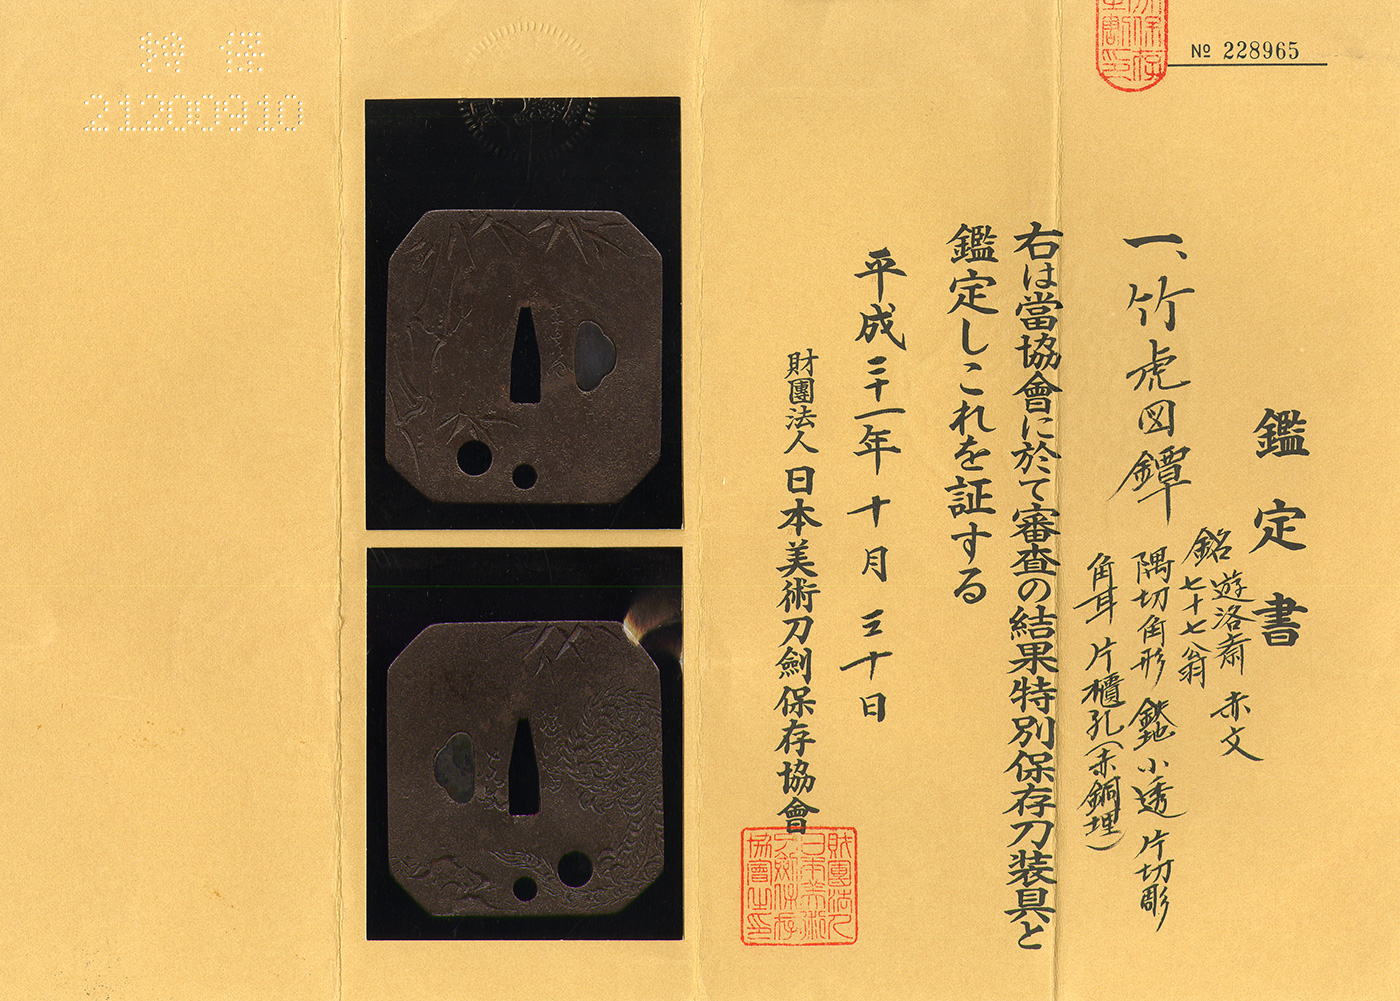 № 228965
鑑定書
一、竹虎図鐔
銘 遊洛斎 赤文
七十七翁
隅切角形 鉄地 小透 片切彫
角耳 片櫃孔(赤銅埋)
右は當協會に於て審査の結果特別保存刀装具と
鑑定しこれを証する
平成二十一年十月三十日
財團法人 日本美術刀劍保存協會
財團法人
日本美術
刀劍保存
協會之印
特保
21200910